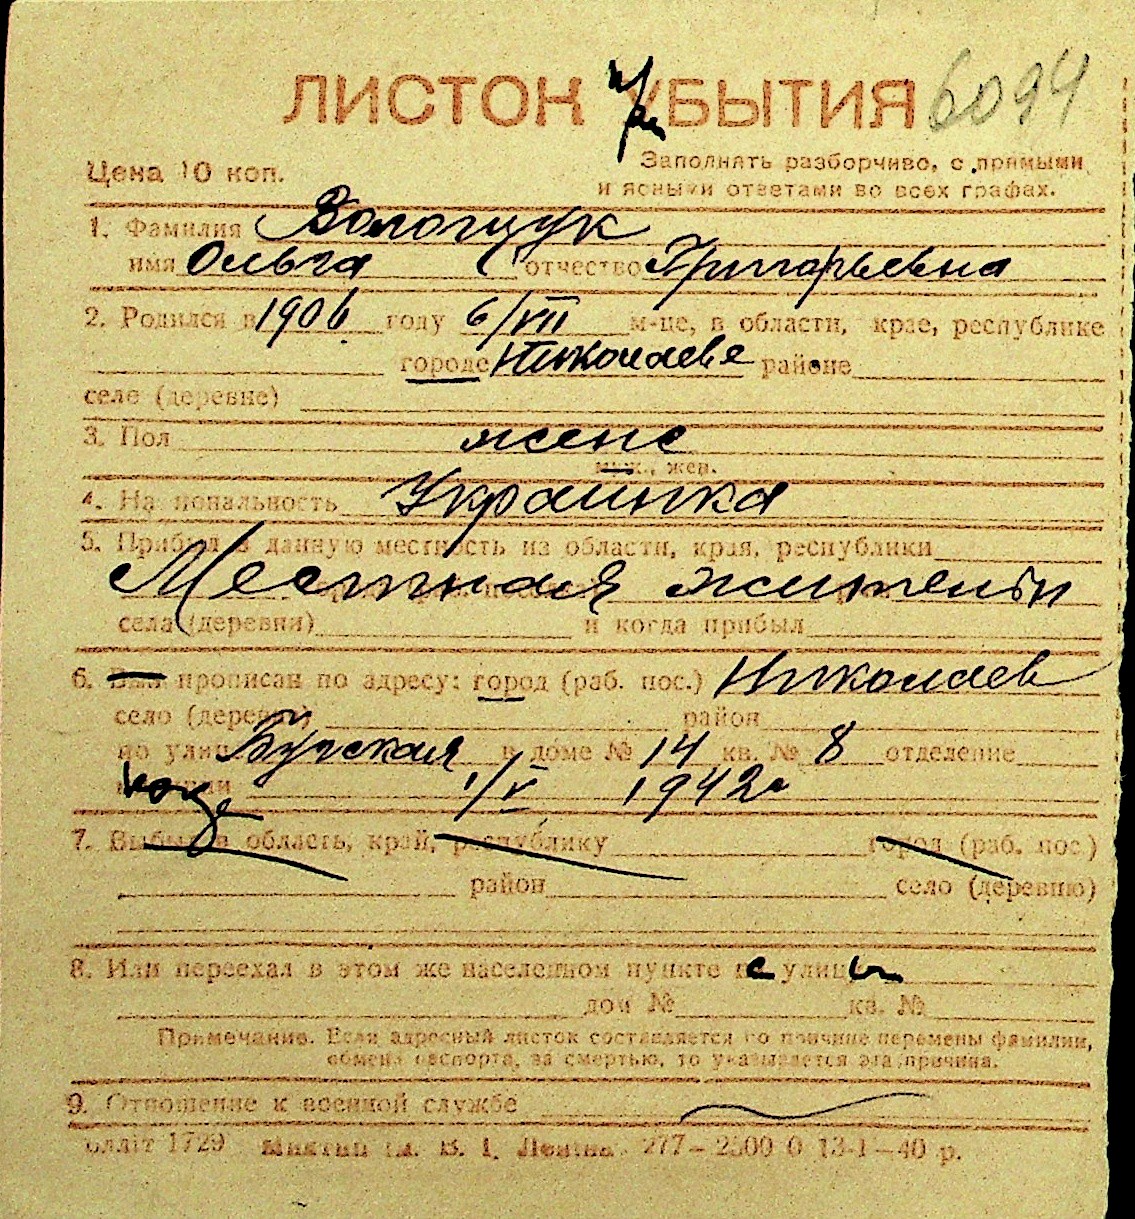 ЛИСТОК УБЫТИЯ 6094
Цена 10 коп.
Заполнять разборчиво, с прямыми
и ясными ответами во всех графах.
1. Фамилия Вологщук
имя Ольга отчество Григорьевна
2. Родился в 1906 году 6/VII м-це, в области, крае, республике
городе Николаеве районе
село (деревне)
3. Пол женс
муж., жен.
4. На иональность Украинка
5. Прибыл в данную местность из области, края, республики
Местная жительн
села (деревни) и когда прибыл
6. Был прописан по адресу: город (раб. пос.) Николаев
село (деревня) район
по улиц в доме № 14 кв. № 8 отделение
1/V 1942г
7. Выбыл в область, край, республику город (раб. пос.)
район село (деревню)
8. Или переехал в этом же населенном пункте с улицы
дом № кв. №
Примечание. Если адресный листок составляется по причине перемены фамилии,
обмена паспорта, за смертью, то указывается эта причина.
9. Отношение к военной службе
1729 В. І. Леніна 277–2500 0 13-1–40 р.